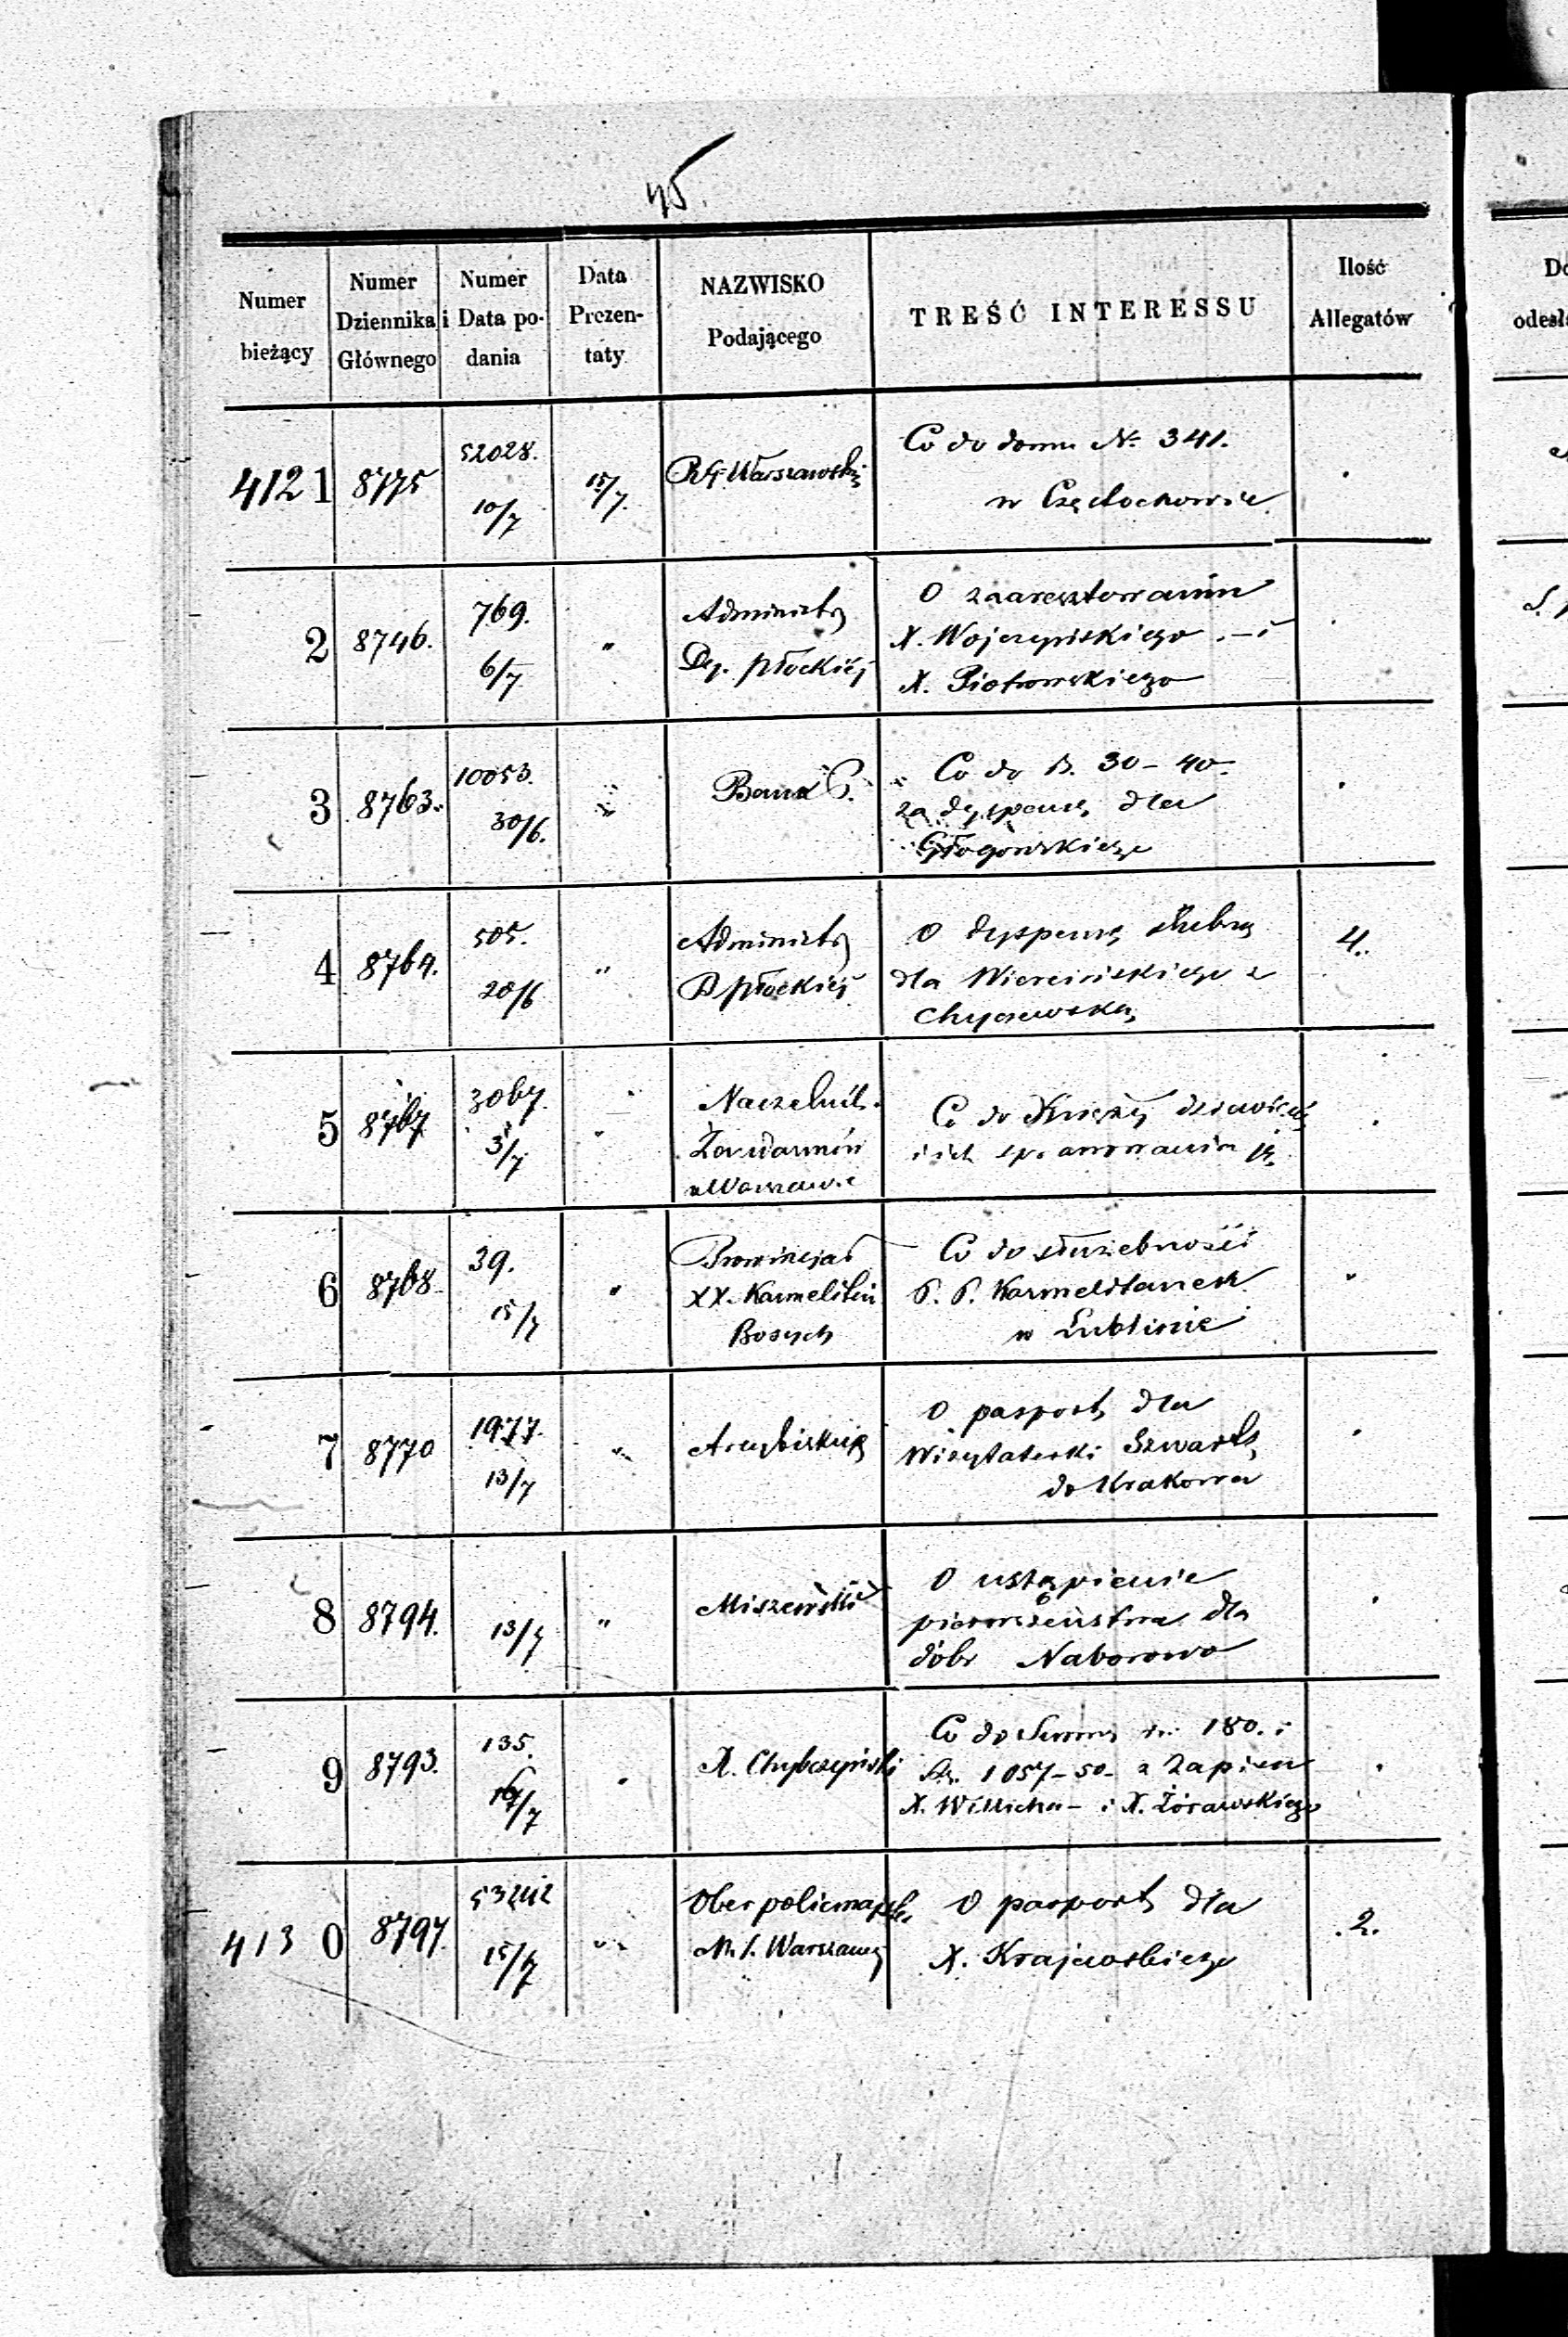 45.
Numer bieżący
Numer Dziennika Głównego
Numer i Data podania
Data Prezentaty
NAZWISKO Podającego
TREŚĆ INTERESSU
Ilość Allegatów
4121 8775 52028. 10/7 15/7. RG Warszawski
Co do domu N. 341.
w Częstochowie
2 8746. 769. 6/7 "
Administr
Dy. Płockiéj
O zaaresztowaniu
X. Wojczyńskiego - i
X. Piotrowskiego
3 8763. 10053. 30/6. "
Bank P.
Co do R. 30-40-
za dyspensę dla
Głogowskiego
4 8764. 505. 20/6 "
Administr
D Płockiéj
O dyspensę ślubną
dla Wiercińskiego z
Chyczewską
4.
5 8767 3067. 3/7 "
Naczelnik
Żandarmów
w Warszawie
Co do Księży
i ich
6 8768 39. 15/7 "
Prowincjał
XX. Karmelitów
Bosych
Co do służebności
P. P. Karmelitanek
w Lublinie
7 8770 1977. 13/7 "
Arcybiskup
O pasport dla
Wizytaterki Szwartz
do Krakowa
8 8794. 13/7 "
Miszewski
O ustąpienie
pierwszeństwa dla
dóbr Naborowo
9 8793. 135. 16/7 "
X. Chybczyński
Co do Summ 180. i
1057-50- z Zapisu
X. Willicha - i X. Żórawskiego
4130 8797. 53242 15/7 "
Oberpolicmajstr.
M. S. Warszawy
O pasport dla
X. Krajewskiego
.2.
Do
odesła